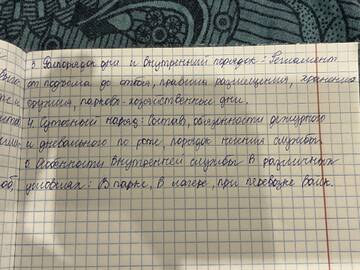 3. Распорядок дня и внутренний порядок: Регламент
от подъема до отбоя, правила размещения, хранения
оружия, парково-хозяйственные дни.
4. Суточный наряд: Состав, обязанности дежурного
и дневального по роте, порядок несения службы
Особенности внутренней службы в различных
условиях: В парке, в лагере, при перевозке войск.